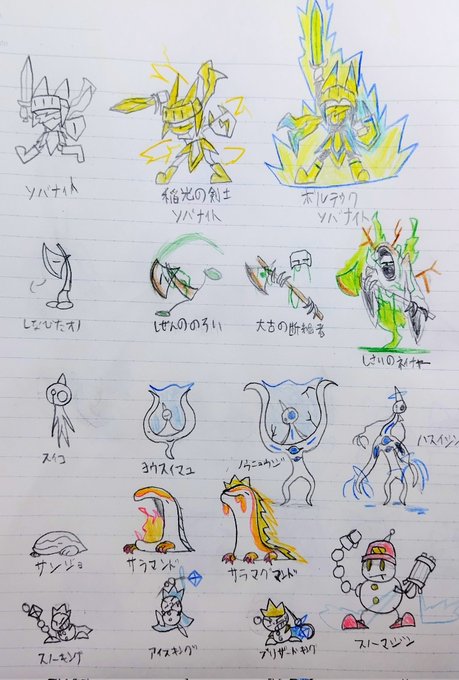 ソバナイト
稲光の剣士
ソバナイト
ボルテック
ソバナイト
しなびたオノ
しぜんののろい
太古の断裁者
しさいのネイチャー
スイコ
ヨウスイマユ
ノウニュウジン
ハスイジン
サンショ
サラマンド
サラマグマンド
スノーキング
アイスキング
ブリザードキング
スノーマジン